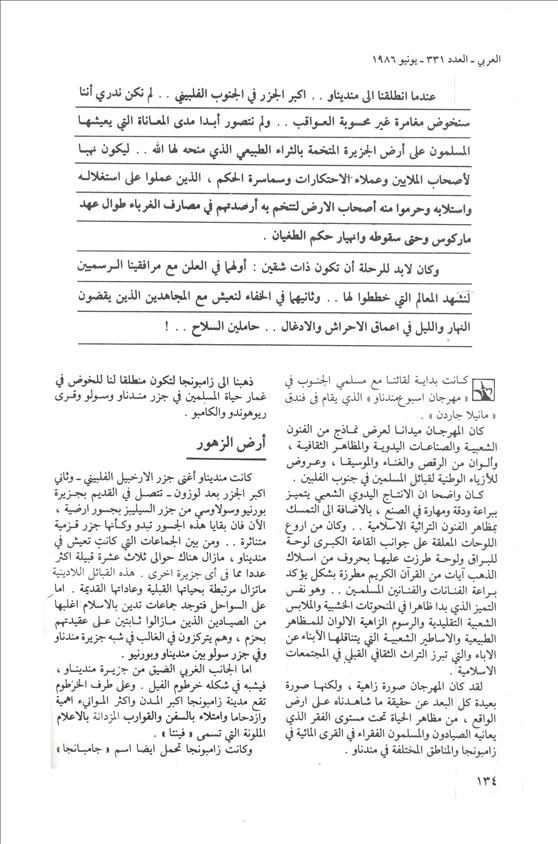 العربي ـ العدد ٣٣١ ـ يونيو ١٩٨٦
عندما انطلقنا الى منديناو . . اكبر الجزر في الجنوب الفلبيني . . لم نكن ندري أننا
سنخوض مغامرة غير محسوبة العواقب . . ولم نتصور أبدا مدى المعاناة التي يعيشها
المسلمون على أرض الجزيرة المتخمة بالثراء الطبيعي الذي منحه لها الله . . ليكون نهبا
لأصحاب الملايين وعملاء الاحتكارات وسماسرة الحكم ، الذين عملوا على استغلاله
واستلابه وحرموا منه أصحاب الارض لتتخم به أرصدتهم في مصارف الغرباء طوال عهد
ماركوس وحتى سقوطه وانهيار حكم الطغيان .
وكان لابد للرحلة أن تكون ذات شقين : أولهما في العلن مع مرافقينا الرسميين
لنشهد المعالم التي خططوا لها . . وثانيهما في الخفاء لنعيش مع المجاهدين الذين يقضون
النهار والليل في اعماق الاحراش والادغال . . حاملين السلاح . . !
كانت بداية لقائنا مع مسلمي الجنوب في
« مهرجان اسبوع مندناو » الذي يقام فى فندق
« مانيلا جاردن » .
كان المهرجان ميدانا لعرض نماذج من الفنون
الشعبية والصناعات اليدوية والمظاهر الثقافية ،
وألوان من الرقص والغناء والموسيقا ، وعروض
للأزياء الوطنية لقبائل المسلمين في جنوب الفلبين .
كان واضحا ان الانتاج اليدوي الشعبي يتميز
ببراعة ودقة ومهارة في الصنع ، بالاضافة الى التمسك
بمظاهر الفنون التراثية الاسلامية . . وكان من اروع
اللوحات المعلقة على جوانب القاعة الكبرى لوحة
للبراق ولوحة طرزت عليها بحروف من اسلاك
الذهب آيات من القرآن الكريم مطرزة بشكل يؤكد
براعة الفنانات والفنانين المسلمين . . وهو نفس
التميز الذي بدا ظاهرا في المنحوتات الخشبية والملابس
الشعبية التقليدية والرسوم الزاهية الالوان للمظاهر
الطبيعية والاساطير الشعبية التي يتناقلها الأبناء عن
الاباء والتي تبرز التراث الثقافي القبلي في المجتمعات
الاسلامية .
لقد كان المهرجان صورة زاهية ، ولكنها صورة
بعيدة كل البعد عن حقيقة ما شاهدناه على ارض
الواقع ، من مظاهر الحياة تحت مستوى الفقر الذي
يعانيه الصيادون والمسلمون الفقراء في القرى المائية في
زامبونجا والمناطق المختلفة في مندناو .
ذهبنا الى زامبونجا لتكون منطلقا لنا للخوض في
غمار حياة المسلمين في جزر مندناو وسولو وقرى
ريوهوندو والكامبو .
أرض الزهور
كانت منديناو أغنى جزر الارخبيل الفلبيني ـ وثاني
اكبر الجزر بعد لوزون ـ تتصل في القديم بجزيرة
بورنيو وسولاوسي من جزر السيليبز بجسور ارضية ،
الآن فان بقايا هذه الجسور تبدو وكأنها جزر قزمية
متناثرة . . ومن بين الجماعات التي كانت تعيش في
منديناو ، مازال هناك حوالى ثلاث عشرة قبيلة اكثر
عددا مما فى أى جزيرة اخرى . هذه القبائل اللادينية
ماتزال مرتبطة بحياتها القبلية وعاداتها القديمة . اما
على السواحل فتوجد جماعات تدين بالاسلام اغلبها
من الصيادين الذين مازالوا ثابتين على عقيدتهم
بحزم ، وهم يتركزون في الغالب في شبه جزيرة مندناو
وفي جزر سولو بين مندناو وبورنيو .
اما الجانب الغربي الضيق من جزيرة منديناو ،
فيشبه في شكله خرطوم الفيل . وعلى طرف الخرطوم
تقع مدينة زامبونجا اكبر المدن واكثر الموانىء اهمية
وازدحاما وامتلاء بالسفن والقوارب المزدانة بالاعلام
الملونة التي تسمى « فينتا » .
وكانت زامبونجا تحمل ايضا اسم « جامبانجا »
١٣٤